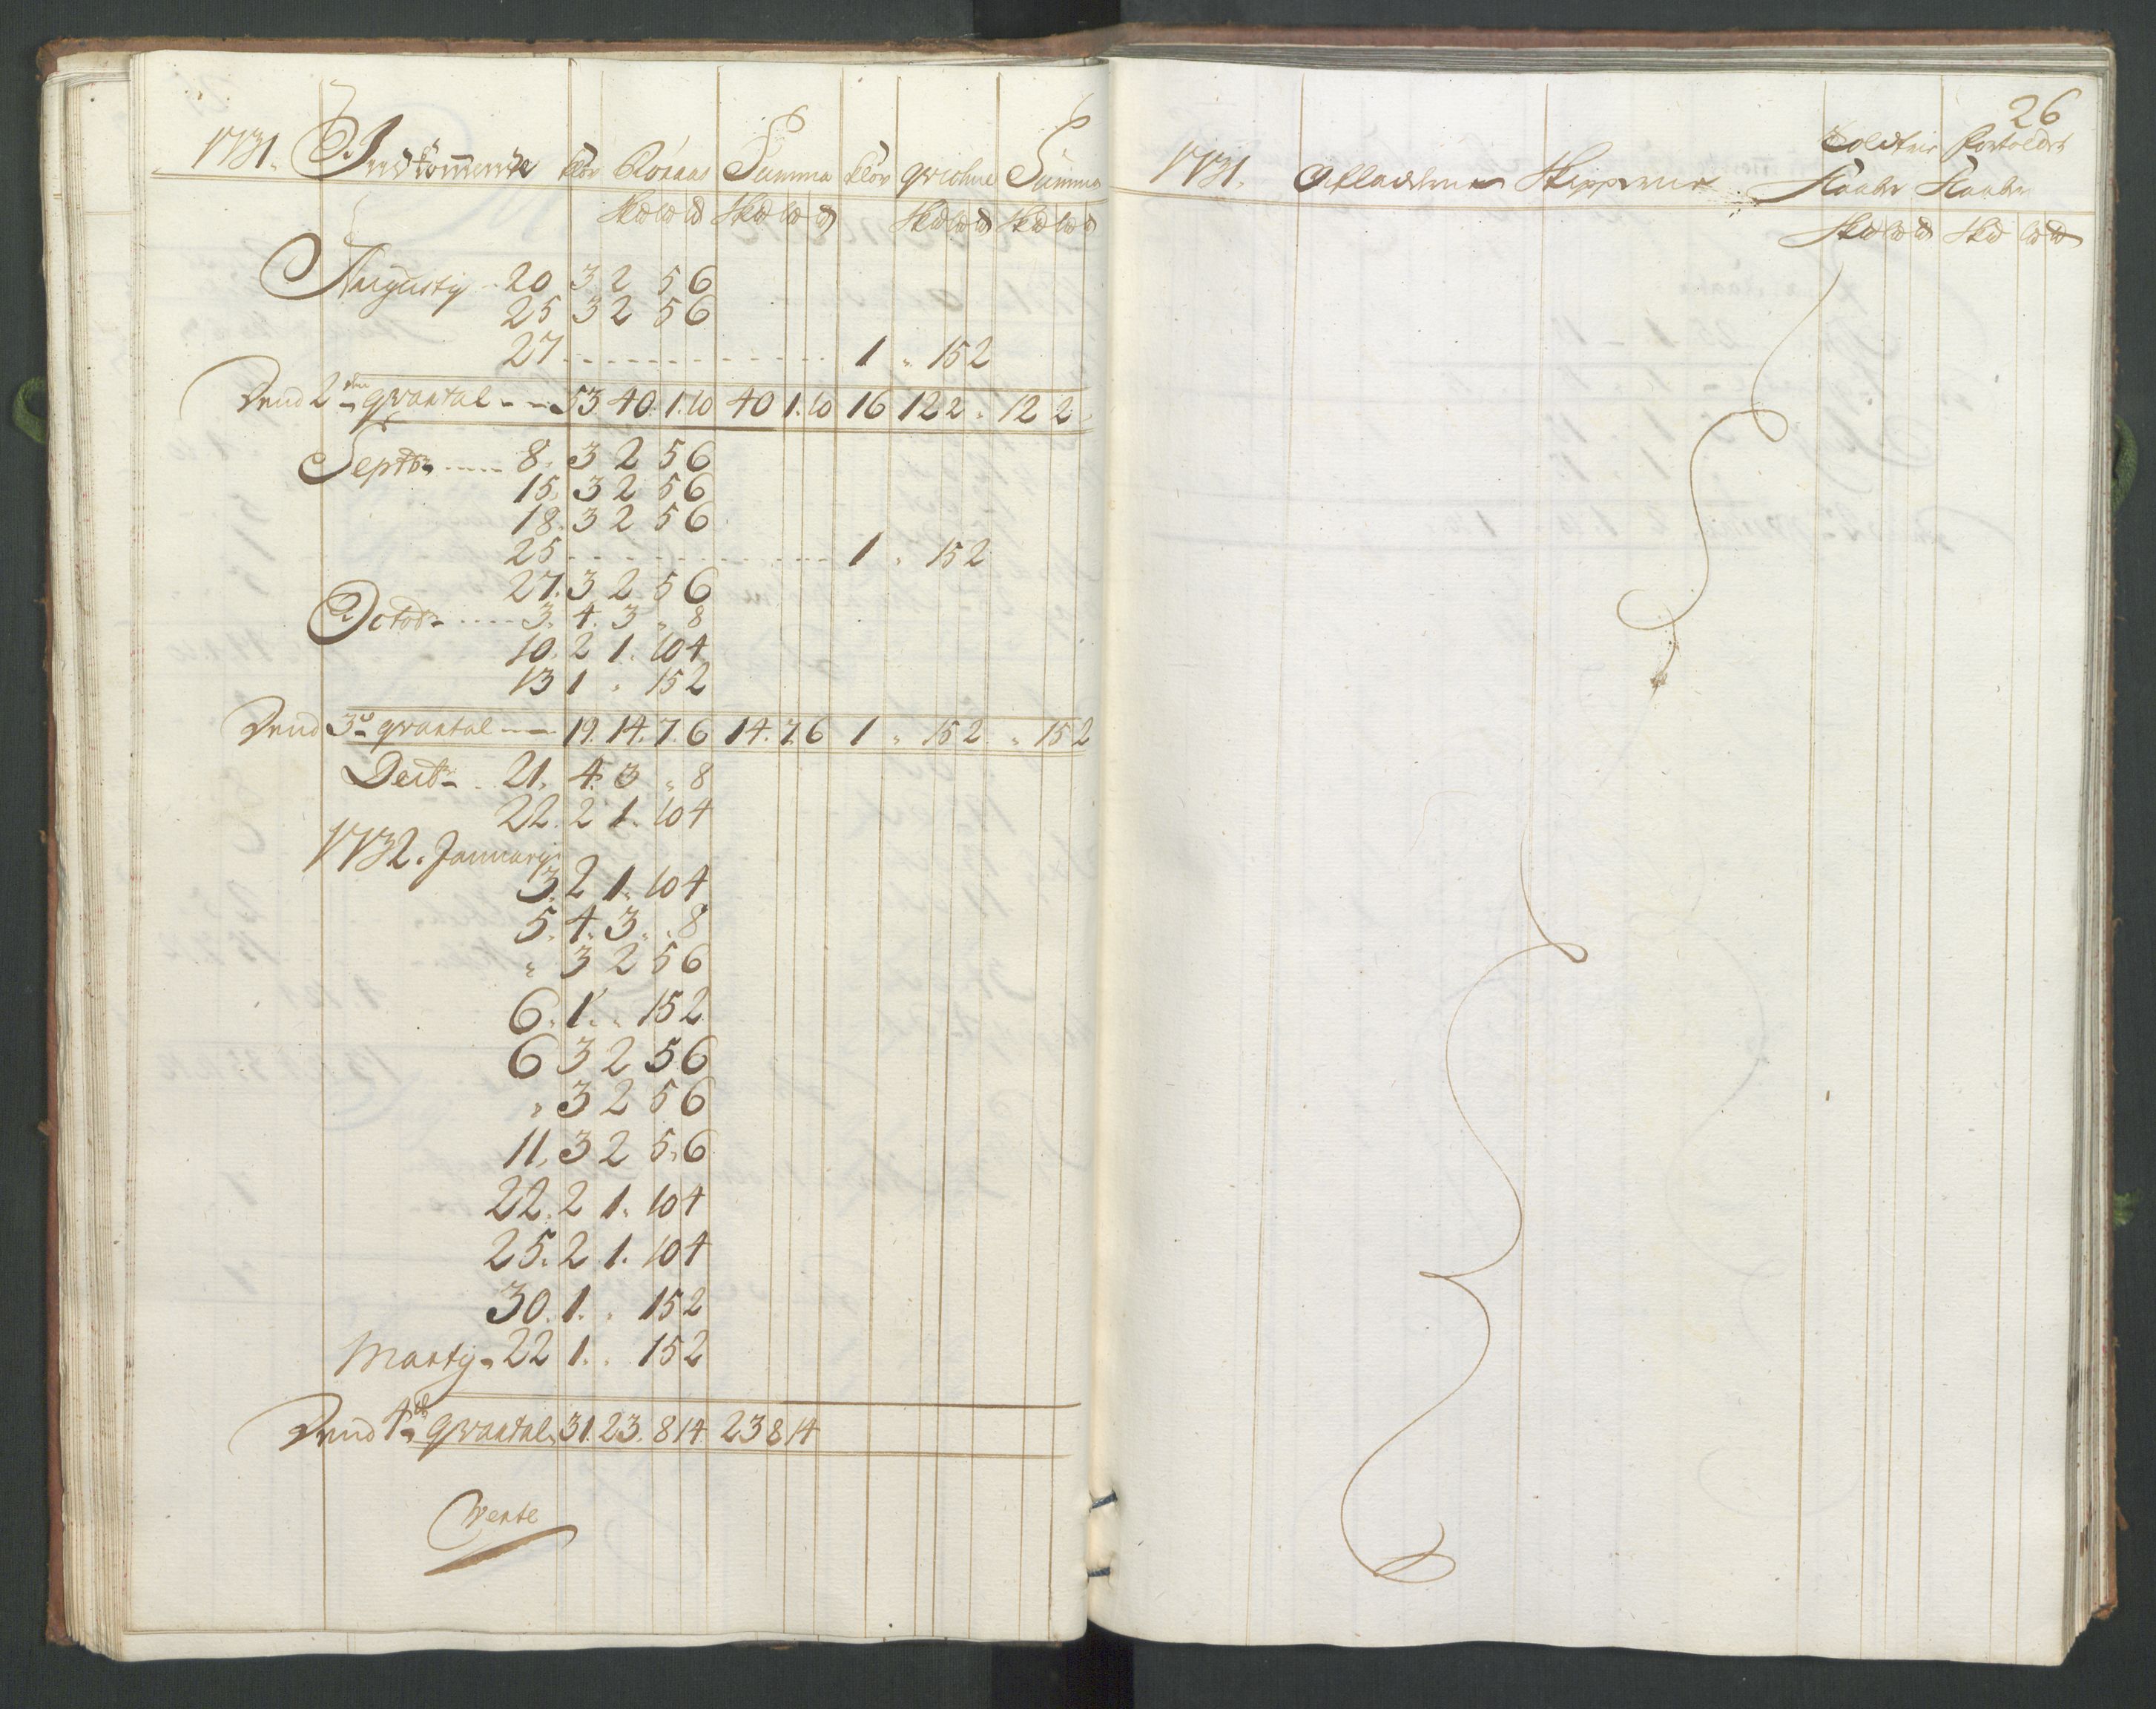 1731. Indkommende kløv Roraas Summa kløv qvichne Summa
Skd lb d Skd lb d Skd lb d Skd lb d
Augusty 20 3 2 5 6
25 3 2 5 6
27 1 " 15 2
Dend 2den qvartal 53 40. 1. 10 40 1. 10 16 12 2 " 12 2
Septbr 8. 3 2 5 6
15. 3 2 5 6
18. 3 2 5 6
25 1 " 15 2
27. 3 2 5 6
Octobr 3. 4. 3 " 8
10. 2 1. 10 4
13 1 " 15 2
Dend 3d qvartal 19. 14. 7. 6 14. 7. 6 1 " 15 2 " 15 2
Decbr 21. 4. 3 " 8
22. 2 1. 10 4
1732. Januarij
3. 2 1. 10 4
5. 4. 3 " 8
" 3 2 5 6
6. 1. " 15 2
6 3 2 5 6
" 3 2 5 6
11. 3 2 5. 6
22. 2 1. 10 4
25. 2 1. 10 4
30. 1. " 15 2
Marty 22 1. " 15 2
Dend 4de qvartal 31. 23. 8 14 23 8 14
Vente
26
1731. Afladerne Skipperne Toldfrie Fortoldet
Kaaber Kaaber
Skd lb d Skd lb d